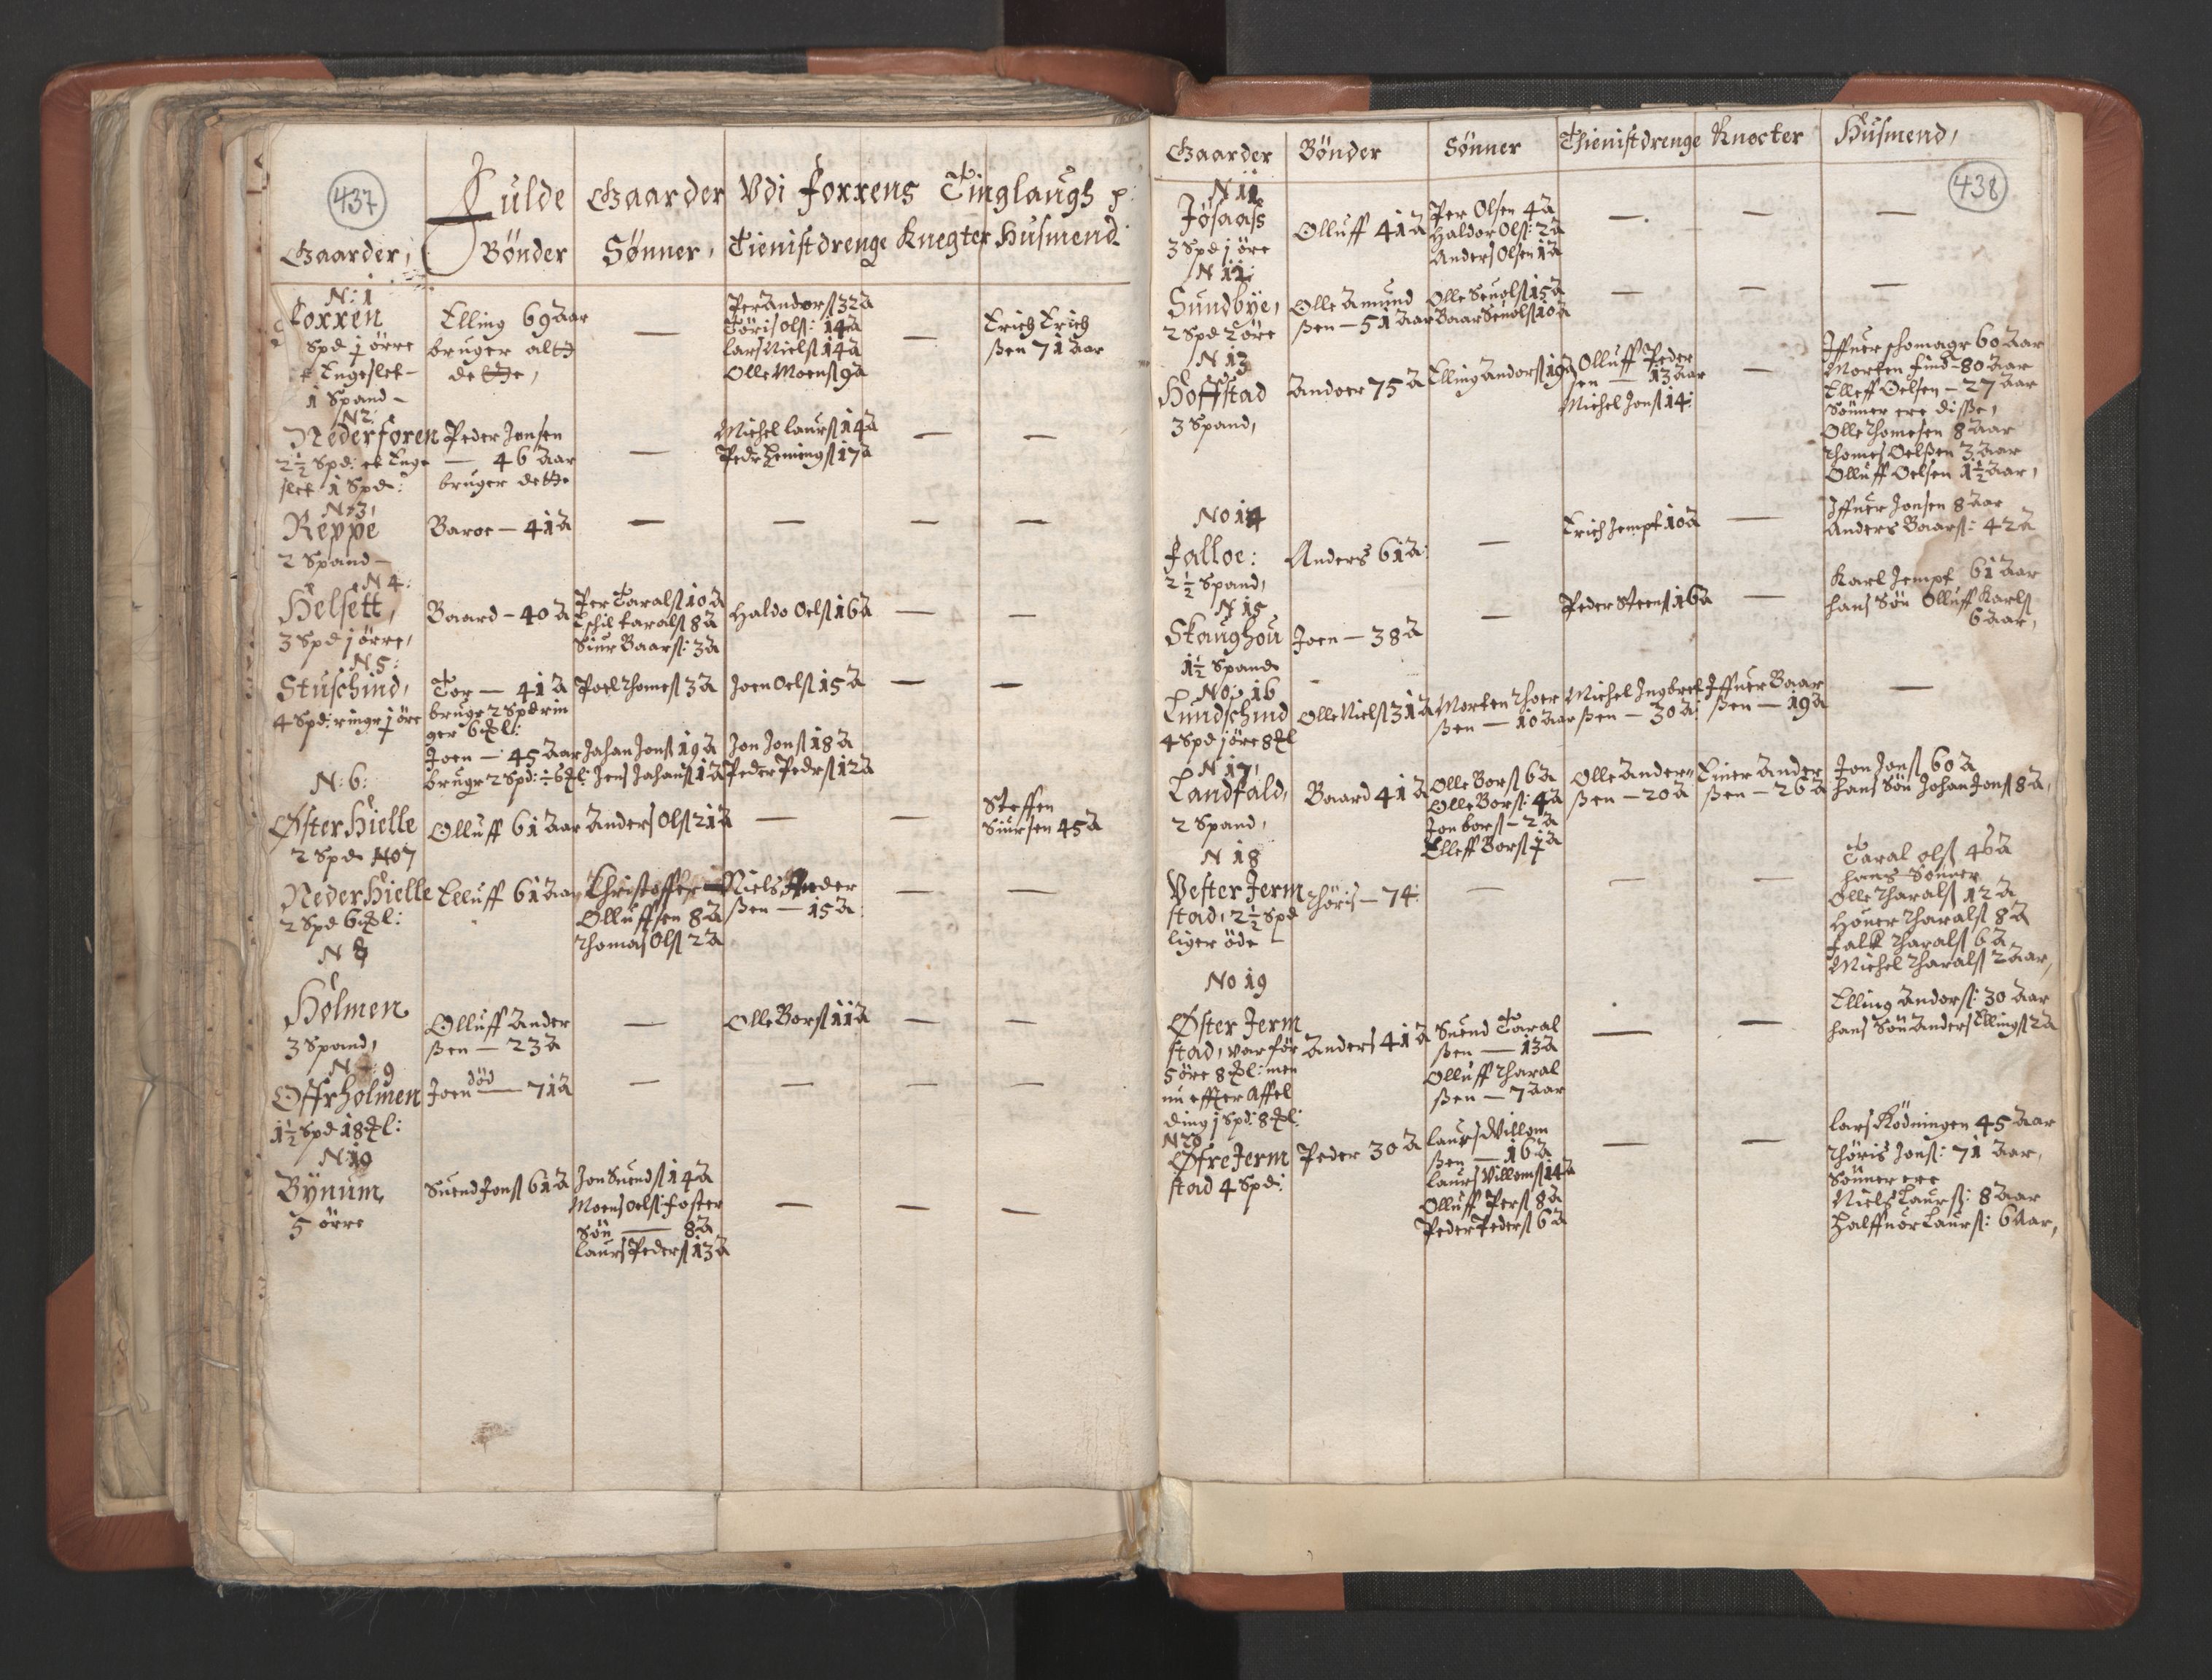 437
Fulde Gaarder Vdi Foxxens Tinglaugh
Gaarder, Bønder Sønner, Tienistdrenge Knegter Husmend
N: 1
Foxxen
Spd j ørre
et Engeslet
1 Spand -
Elling 69 Aar
bruger alt
dette,
—
Per Anders 32 A
Töris Ols: 14 A
Lars Niels 14 A
Olle Moens 9 A
—
Erich Erich
ßen 71 Aar
N 2
Nederforen
2½ Spd: et Enge
slet 1 Spd:
Peder Jensen
— 46 Aar
bruger dette
—
Michel Laurs 14 A
Pedr Hemings 17 A
— —
N: 3,
Reppe
2 Spand -
Baroe - 41 A
— — — —
N 4:
Helsett,
3 Spd j ørre,
Baard - 40 A
Per Tarals 10 A
Eschil tarals 8 A
Siur Baars: 3 A
Haldo Oels 16 A
— —
N 5:
Stuschind,
4 Spd: ringr j öre
Tor — 41 A
brugr 2 Spd rin
ger 6 L:
Poel Thomes 3 A
Joen Oels 15 A
— —
Joen - 45 Aar
brugr 2 Spd: ÷ 6 L:
Johan Jons 19 A
Jens Johans 1 A
Jon Jons 18 A
Peder Pedrs 12 A
N: 6:
Øster Hielle
2 Spd
Olluff 61 Aar
Anders Ols 21 A
— —
Steffen
Siursen 45 A
No 7
Neder Hielle
2 Spd 6 L:
Elluff 61 Aar
Christoffer
Olluffsen 8 A
Thomas Ols 2 A
Niels Ander
ßen — 15 A:
— —
N 8
Holmen
3 Spand,
Olluff Ander
ßen — 23 A
—
Olle Bors 11 A
— —
N: 9
Offrholmen
1½ Spd 18 L:
død
Joen — 71 A
— — — —
N 10
Bÿnum,
5 ørre
Suend Jons 61 A
Jon Suends 14 A
Moens Oels: foster
Søn — 8 A
Laurs Peders 13 A
— — —
438
Gaarder Bönder Sönner Thienistdrenge Knecter Husmend,
N 11
Jøsaass
3 Spd j öre
Olluff 41 A
Per Olsen 4 A
Haldor Ols: 2 A
Anders Olsen 1 A
— — —
N 12:
Sundbÿe,
2 Spd 2 öre
Olle Amund
ßen — 51 Aar
Olle Seuols 15 A
Baar Seuols 10 A
— — —
N 13
Hoffstad
3 Spand,
Andoer 75 A
Elling Andors 19 A
Olluff Peder
sen — 13 Aar
Michel Jons 14:
—
Iffuer schomagr 60 Aar
Morten find - 80 Aar
Elleff Oelsen - 27 Aar
Sönner ere disse,
Olle Thomesen 8 Aar
Thomes Oelßen 3 Aar
Olluff Oelsen 1½ Aar,
No 14
Falloe:
2½ Spand,
Anders 61 A:
—
Erich Jempt 10 A
—
Iffuer Jonsen 8 Aar
Anders Baars: 42 A
N 15
Skaughou
1½ Spand
Joen — 38 A
—
Peder Steens 16 A
—
Karl Jempt 61 Aar
hans Søn Olluff Karls
6 Aar,
No: 16
Lundschind
4 Spd j öre 8 L
Olle Niels 31 A
Morten Thoer
ßen — 10 Aar
Michel Ingbret
ßen — 30 A:
Iffuer Baar
ßen — 19 A
—
N 17,
Landfald,
2 Spand,
Baard 41 A
Olle Bors 6 A
Olle Bors: 4 A
Jon bors - 2 A
Elleff Bors 1 A
Olle Ander
ßen — 20 A
Einer Ander
ßen — 26 A
Jon Jons 60 A
hans Søn Johan Jons 8 A,
N 18
Vester Jerm
stad, 2½ Spd
liger øde
Thöris — 74:
— — —
Taral ols 46 A
hans Sønner
Olle Tharals 12 A
Höuer Tharals 8 A
Falk Tharals 6 A
Michel Tharals 2 Aar,
No 19
Øster Jerm
stad, var før
5 öre 8 L: men
nu effter Affel
ding j Spd: 8 L:
Anders 41 A
Suend Taral
ßen — 13 A
Olluff Tharal
ßen — 7 Aar
— —
Elling Andors: 30 Aar
hans Søn Anders Ellings 2 A
N 20
Øfre Jerm
stad 4 Spd:
Peder 30 A
Laurs Villom
ßen — 16 A
Laurs Villoms 14 A
Olluff Pers 8 A
Peder Peders 6 A
— —
Lars Ködningen 45 Aar
Thöris Jons: 71 Aar,
Sönner ere
Niels Laurs: 8 Aar
Halffuor Laurs: 6 Aar,